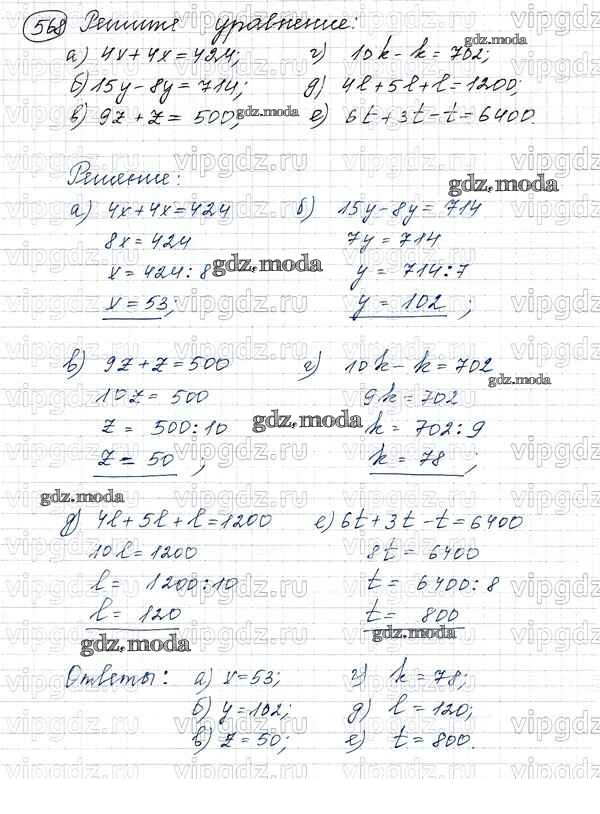 568 Решите уравнение:
а) 4x+4x=424; г) 10k-k=702;
б) 15y-8y=714; д) 4l+5l+l=1200;
в) 9z+z=500; е) 6t+3t-t=6400.
Решение:
а) 4x+4x=424 б) 15y-8y=714
8x=424 7y=714
x=424:8 y=714:7
x=53; y=102;
в) 9z+z=500 г) 10k-k=702
10z=500 9k=702
z=500:10 k=702:9
z=50; k=78;
д) 4l+5l+l=1200 е) 6t+3t-t=6400
10l=1200 8t=6400
l=1200:10 t=6400:8
l=120 t=800
Ответы: а) x=53; г) k=78;
б) y=102; д) l=120;
в) z=50; е) t=800.
gdz.moda
vipgdz.ru